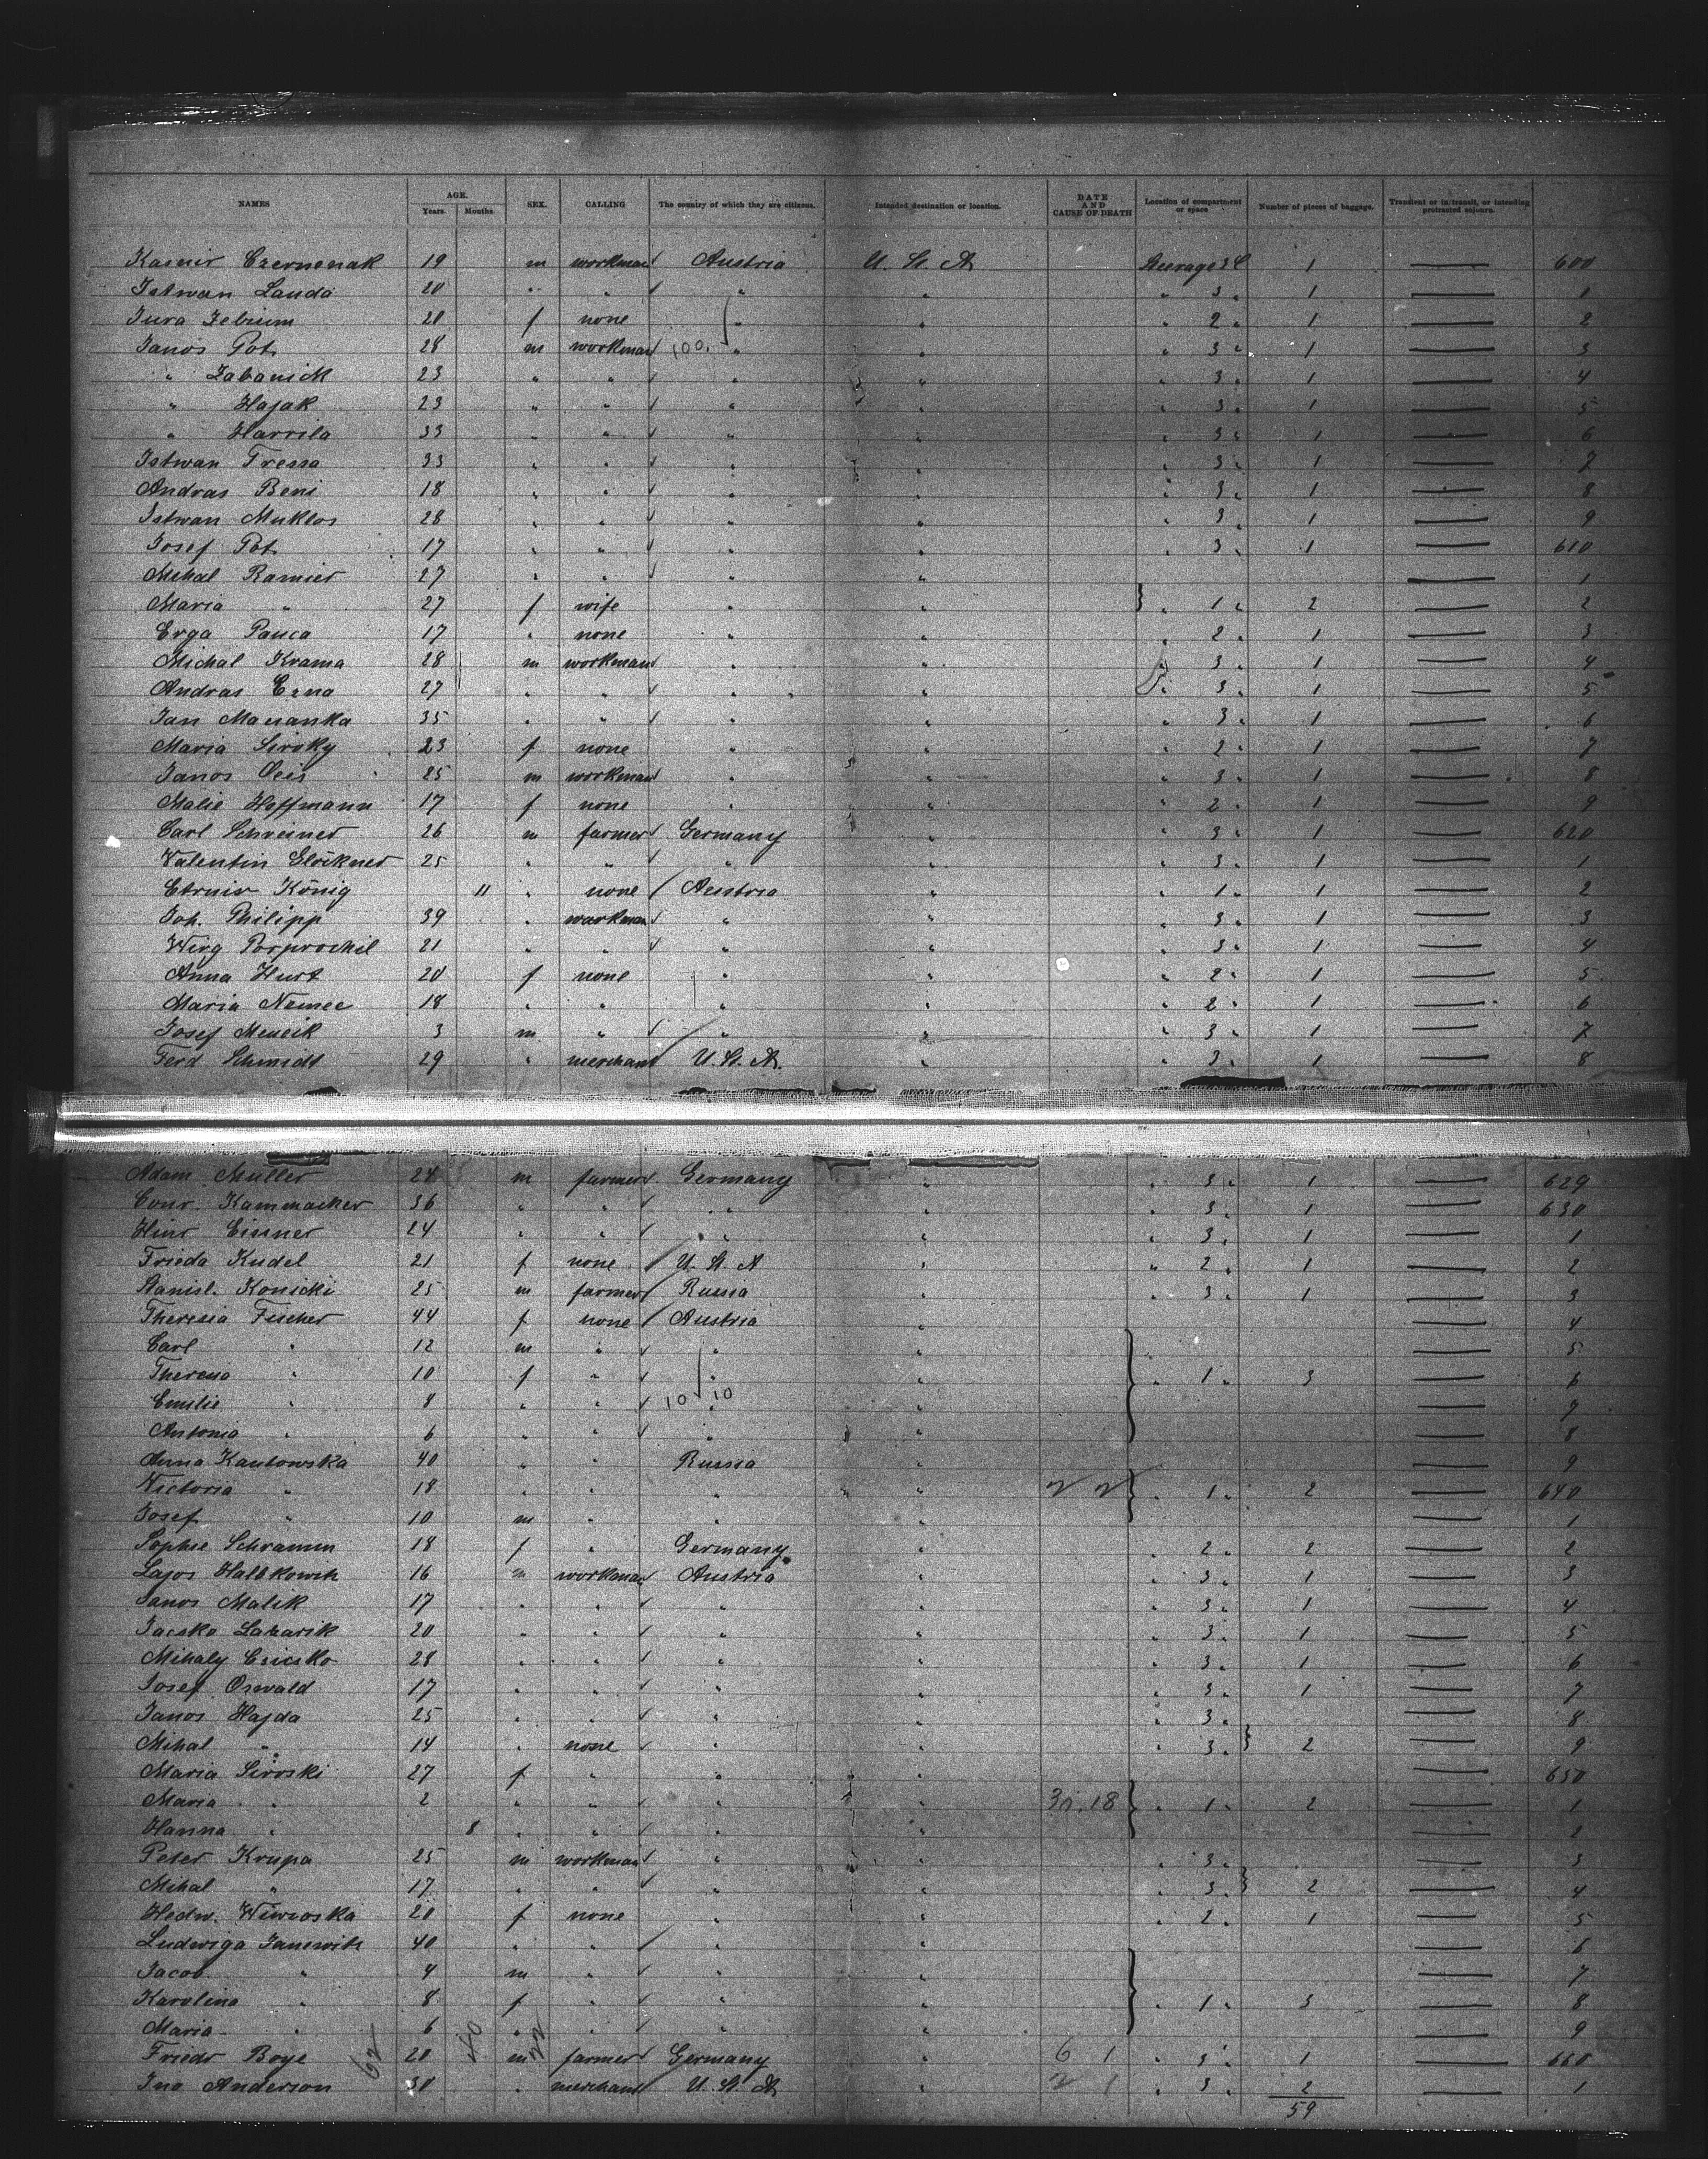 NAMES AGE. Years. Months. SEX. CALLING The country of which they are citizens. Intended destination or location. DATE AND CAUSE OF DEATH Location of compartment or space Number of pieces of baggage. Transient or in transit, or intending protracted sojourn.
Czernenak 19 m workman Austria U. St. A. 1 — 600
Istwan Lauda 20 " " " " " 3 " 1 — 1
20 f none " " " 2 " 1 — 2
Janos Pot 28 m workman 100. " " " 3 " 1 — 3
" 23 " " " " " 3 " 1 — 4
" Hajak 23 " " " " " 3 " 1 — 5
" Harrila 33 " " " " " 3 " 1 — 6
Istwan Tressa 33 " " " " " 3 " 1 — 7
Andras Beni 18 " " " " " 3 " 1 — 8
Istwan Muklos 28 " " " " " 3 " 1 — 9
Josef Pot 17 " " " " " 3 " 1 — 610
Mihal Ramier 27 " " " " — 1
Maria " 27 f wife " " " 1 " 2 — 2
Erga Pauca 17 " none " " " 2 " 1 — 3
Michal Krama 28 m workman " " " 3 " 1 — 4
Andras 27 " " " " " 3 " 1 — 5
Jan 35 " " " " " 3 " 1 — 6
Maria Siroky 23 f none " " " 2 " 1 — 7
Janos 25 m workman " " " 3 " 1 — 8
Malie Hoffmann 17 f none " " " 2 " 1 — 9
Carl Schreiner 26 m farmer Germany " " 3 " 1 — 620
Valentin Glöckner 25 " " " " " 3 " 1 — 1
König 11 " none Austria " " 1 " 1 — 2
Joh. Philipp 39 " workman " " " 3 " 1 — 3
Wirg Porprochil 21 " " " " " 3 " 1 — 4
Anna Hurt 20 f none " " " 2 " 1 — 5
Maria Nemec 18 " " " " " 2 " 1 — 6
Josef Mencik 3 m " " " " 3 " 1 — 7
Ferd Schmidt 29 " merchant U. St. A. " " 3 " 1 — 8
Adam Müller 24 m farmer Germany " " 3 " 1 — 629
Conr. Kammacher 36 " " " " " 3 " 1 — 630
Hinr Eissner 24 " " " " " 3 " 1 — 1
Frieda Kudel 21 f none U. St. A " " 2 " 1 — 2
Stanisl. Konicki 25 m farmer Russia " 3 " 1 — 3
Theresia Fischer 44 f none Austria " — 4
Carl " 12 m " " " — 5
Theresa " 10 f " " " " 1 " 3 — 6
Emilie " 8 " " 10 10 " " — 7
Antonia " 6 " " " " — 8
Anna Kantowska 40 " " Russia " — 9
Victoria " 18 " " " " " 1 " 2 — 640
Josef " 10 m " " " — 1
Sophie Schramm 18 f " Germany " " 2 " 2 — 2
Lajos 16 m workman Austria " " 3 " 1 — 3
Janos Malik 17 " " " " " 3 " 1 — 4
Jacsko Lazarik 20 " " " " " 3 " 1 — 5
Mihaly Csicsko 28 " " " " " 3 " 1 — 6
Josef Oswald 17 " " " " " 3 " 1 — 7
Janos Hajda 25 " " " " " 3 " — 8
Mihal " 14 " none " " " 3 " 2 — 9
Maria Siroski 27 f " " " — 650
Maria " 2 " " " " " 1 " 2 — 1
Hanna " 8 " " " " — 2
Peter Krupa 25 m workman " " " 3 " — 3
Mihal " 17 " " " " " 3 " 2 — 4
Hedw. 20 f none " " " 2 " 1 — 5
Ludwiga Janewitz 40 " " " " — 6
Jacob " 4 m " " " — 7
Karolina " 8 f " " " " 1 " 3 — 8
Maria " 6 " " " " — 9
Friedr Boye 20 m farmer Germany " 6 1 " 3 " 1 — 660
Jno Anderson 30 " merchant U. St. A. " 2 1 " 3 " 2 — 1
59